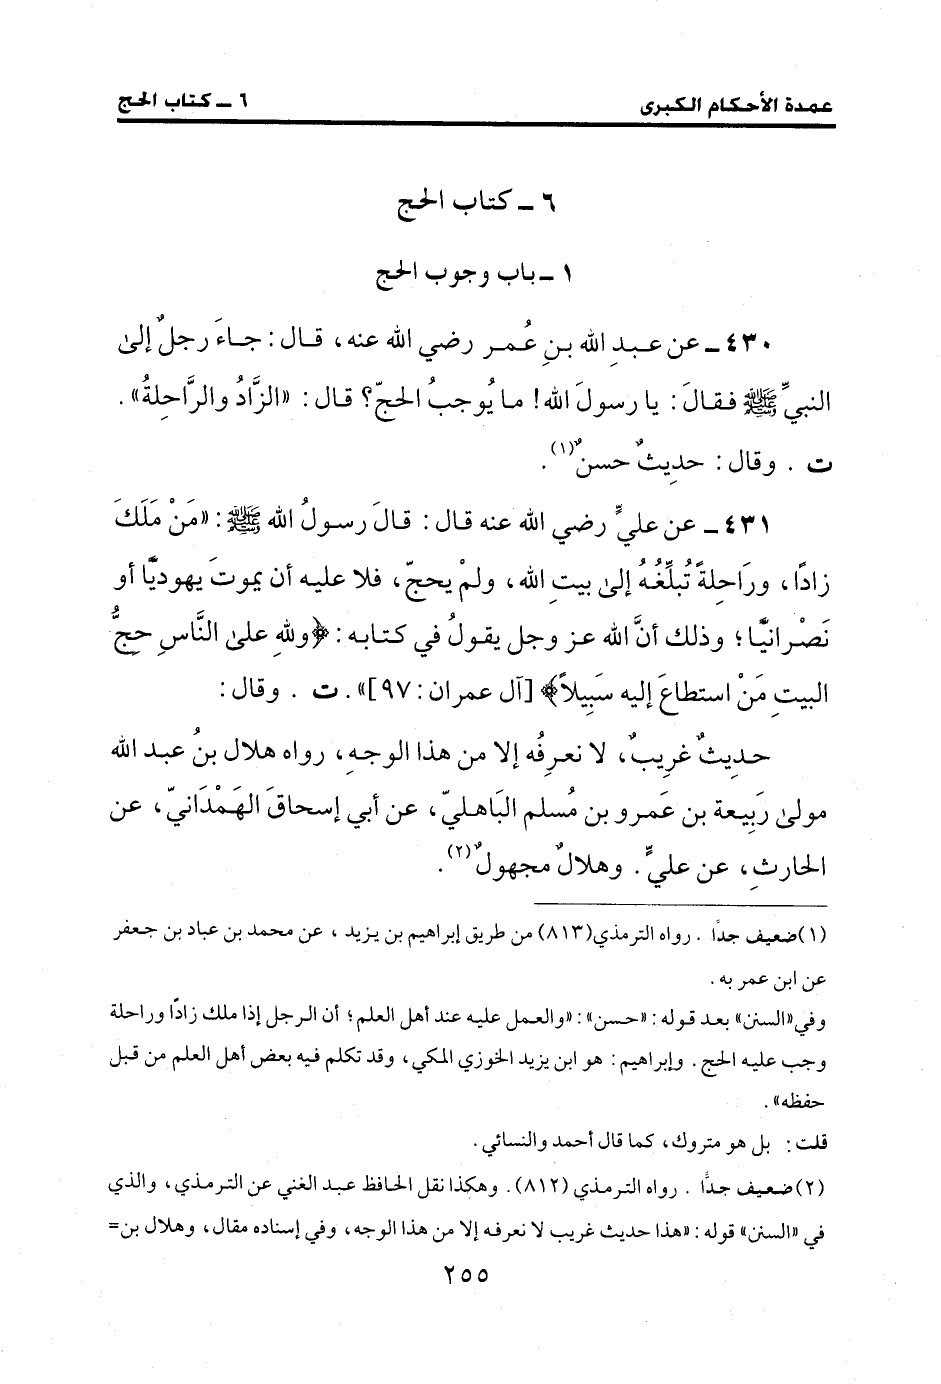 عمدة الأحكام الكبرى
٦ ـ كتاب الحج
٦ ـ كتاب الحج
١ ـ باب وجوب الحج
٤٣٠ ـ عن عبدِ الله بنِ عُمر رضي الله عنه، قال: جاءَ رجلٌ إلىٰ
النبيِّ ﷺ فقالَ: يا رسولَ الله! ما يُوجبُ الحجّ؟ قال: «الزَّادُ والرَّاحلةُ».
ت. وقال: حديثٌ حسنٌ(١).
٤٣١ ـ عن عليٍّ رضي الله عنه قال: قالَ رسولُ الله ﷺ: «مَنْ مَلَكَ
زادًا، ورَاحلةً تُبلِّغُهُ إلىٰ بيتِ الله، ولمْ يحجّ، فلا عليه أن يموتَ يهوديًّا أو
نَصْرانيًّا؛ وذلك أنَّ الله عز وجل يقولُ في كتابه: ﴿ولله علىٰ النَّاسِ حِجُّ
البيتِ مَنْ استطاعَ إليه سَبِيلاً﴾ [آل عمران: ٩٧]». ت. وقال:
حديثٌ غريبٌ، لا نعرفُه إلا من هذا الوجهِ، رواه هلال بنُ عبد الله
مولىٰ رَبيعة بن عَمرو بن مُسلم البَاهليّ، عن أبي إسحاقَ الهَمْدَانيّ، عن
الحارثِ، عن عليٍّ. وهلالٌ مجهولٌ(٢).
(١) ضعيف جدًا. رواه الترمذي (٨١٣) من طريق إبراهيم بن يزيد، عن محمد بن عباد بن جعفر
عن ابن عمر به.
وفي «السنن» بعد قوله: «حسن»: «والعمل عليه عند أهل العلم؛ أن الرجل إذا ملك زادًا وراحلة
وجب عليه الحج. وإبراهيم: هو ابن يزيد الخوزي المكي، وقد تكلم فيه بعض أهل العلم من قبل
حفظه».
قلت: بل هو متروك، كما قال أحمد والنسائي.
(٢) ضعيف جدًّا. رواه الترمذي (٨١٢). وهكذا نقل الحافظ عبد الغني عن الترمذي، والذي
في «السنن» قوله: «هذا حديث غريب لا نعرفه إلا من هذا الوجه، وفي إسناده مقال، وهلال بن=
٢٥٥